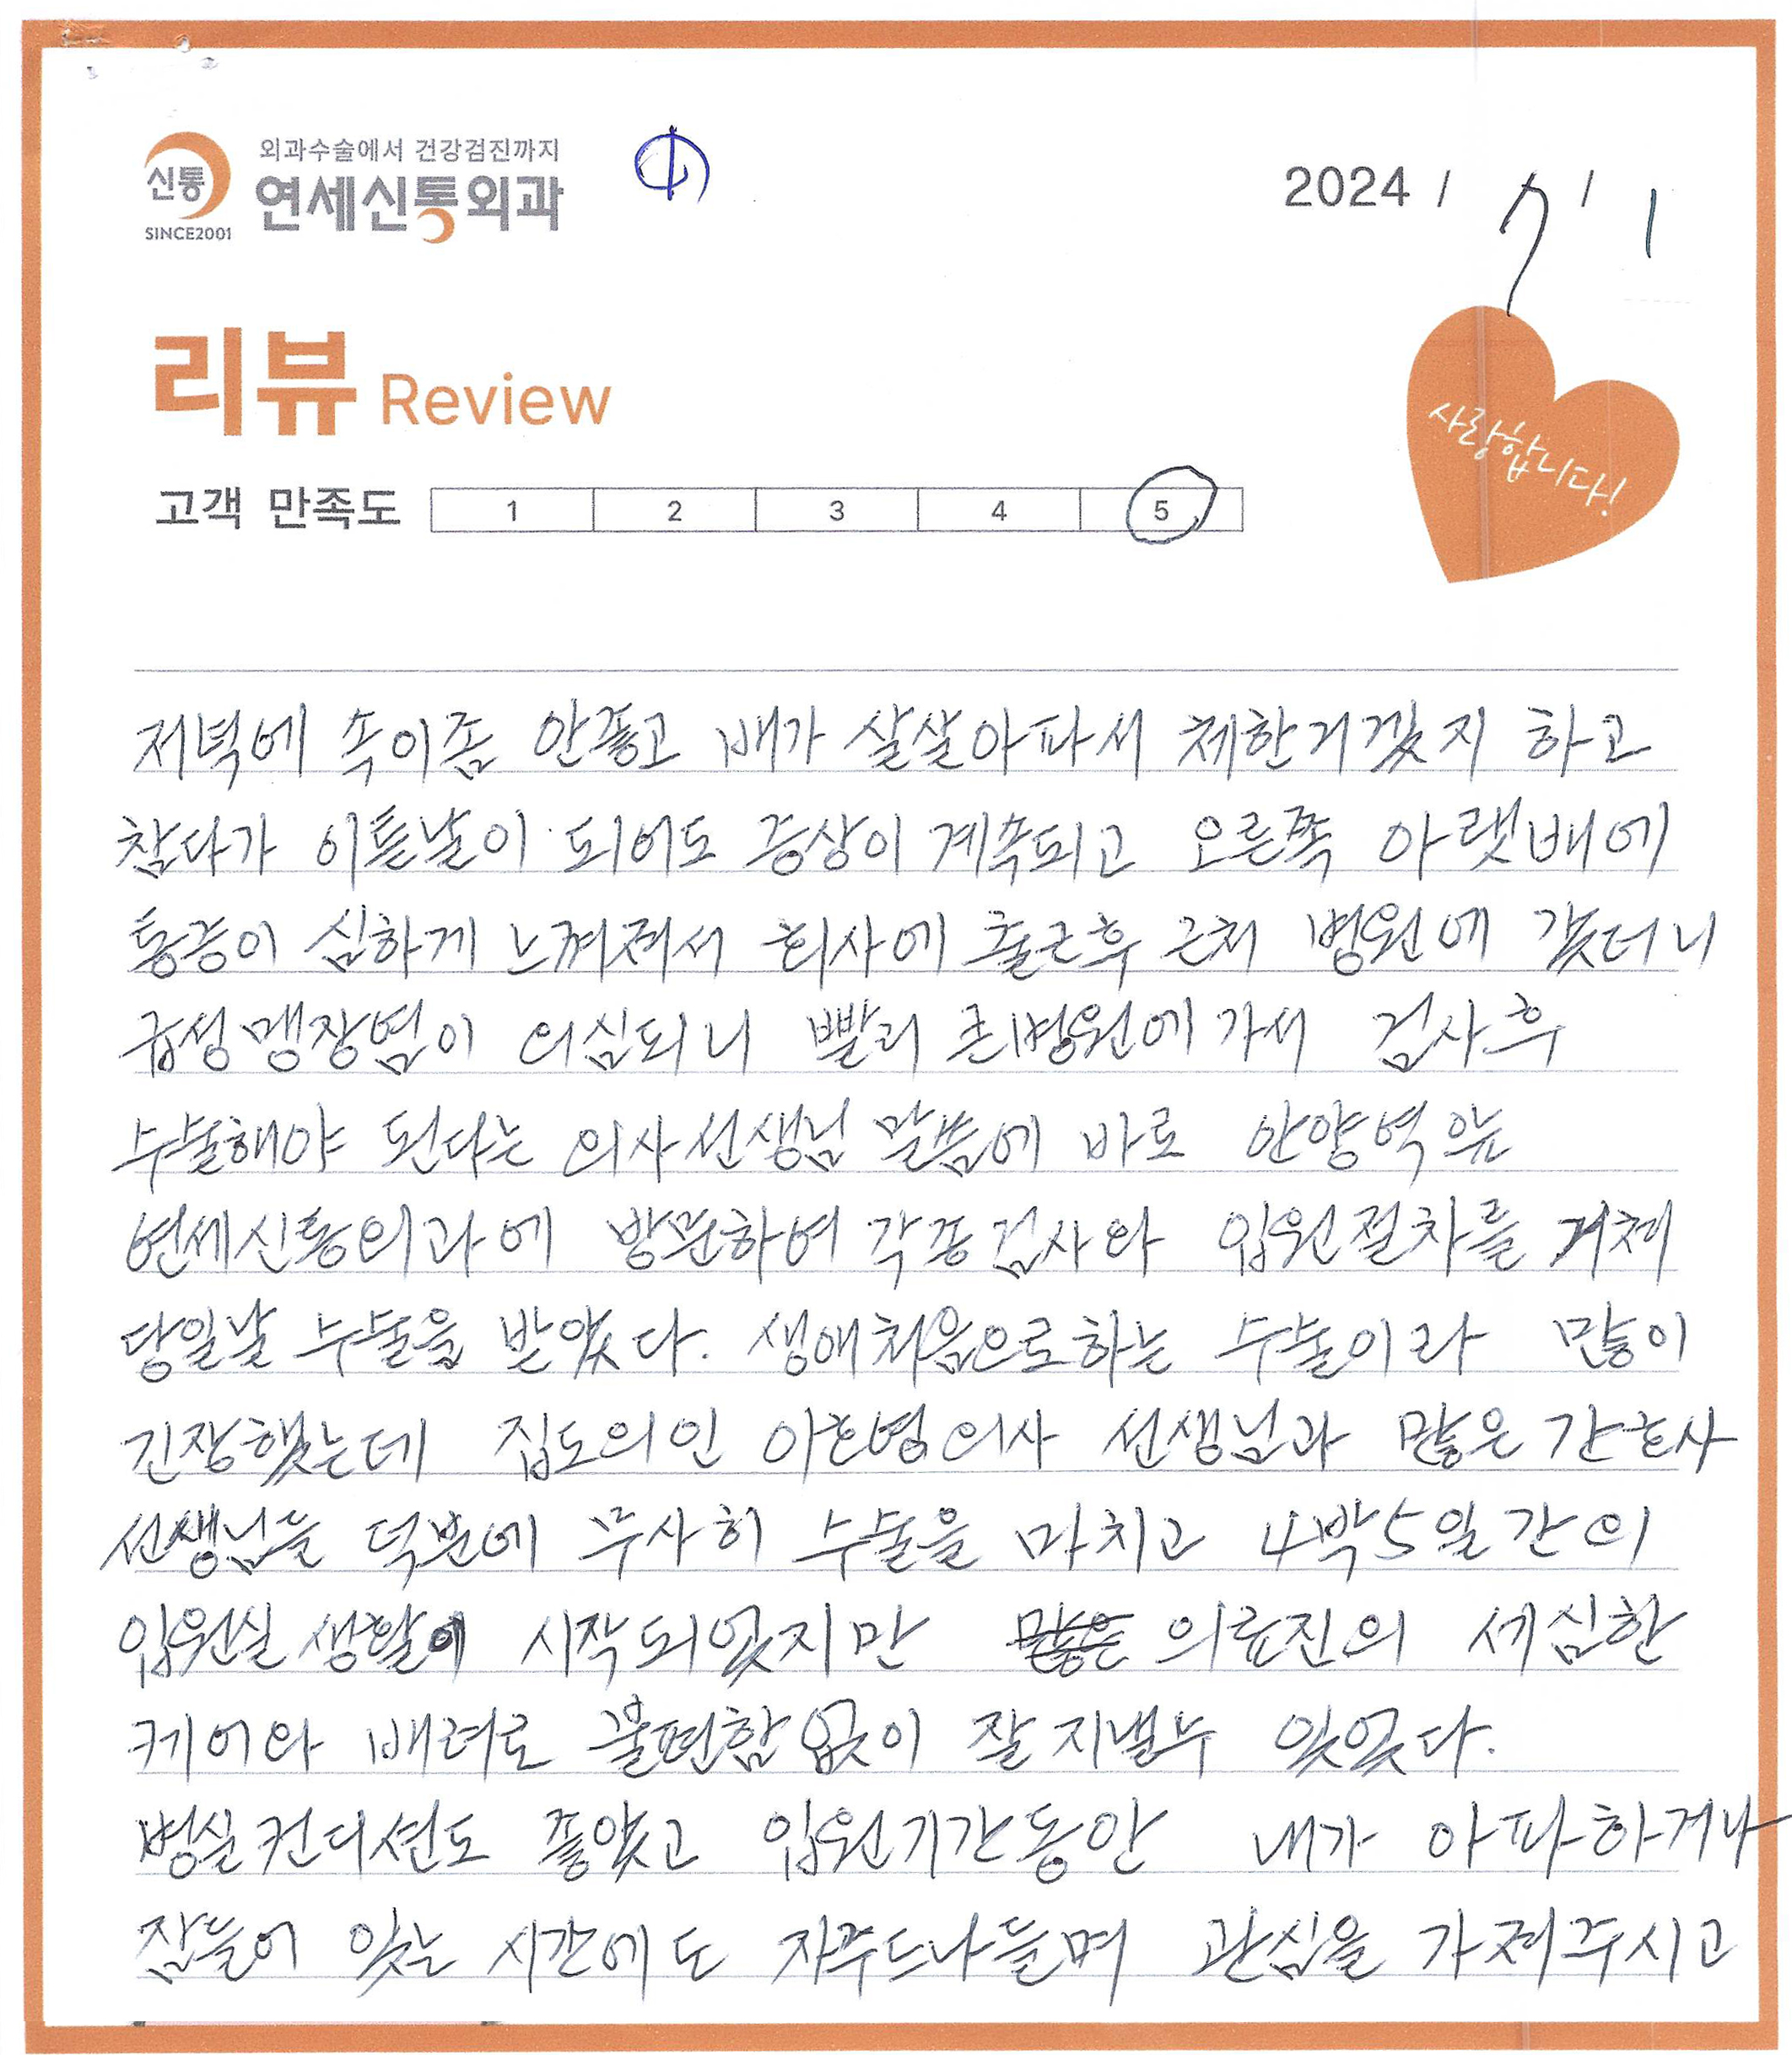 외과수술에서 건강검진까지
신통 연세신통외과
SINCE2001
①
2024 / 7 / 1
리뷰 Review
사랑합니다!
고객 만족도 1 2 3 4 5
저녁에 속이좀 안좋고 배가 살살아파서 체한거겠지 하고
참다가 이튿날이 되어도 증상이 계속되고 오른쪽 아랫배에
통증이 심하게 느껴져서 회사에 출근후 근처 병원에 갔더니
급성맹장염이 의심되니 빨리 큰병원에 가서 검사후
수술해야 된다는 의사선생님 말씀에 바로 안양역 앞
연세신통외과에 방문하여 각종검사와 입원절차를 거쳐
당일날 수술을 받았다. 생애처음으로하는 수술이라 많이
긴장했는데 집도의인 이호영의사 선생님과 많은 간호사
선생님들 덕분에 무사히 수술을 마치고 4박5일간의
입원실 생활이 시작되었지만 많은 의료진의 세심한
케어와 배려로 불편함없이 잘지낼수 있었다.
병실컨디션도 좋았고 입원기간동안 내가 아파하거나
잠들어 있는 시간에도 자주드나들며 관심을 가져주시고